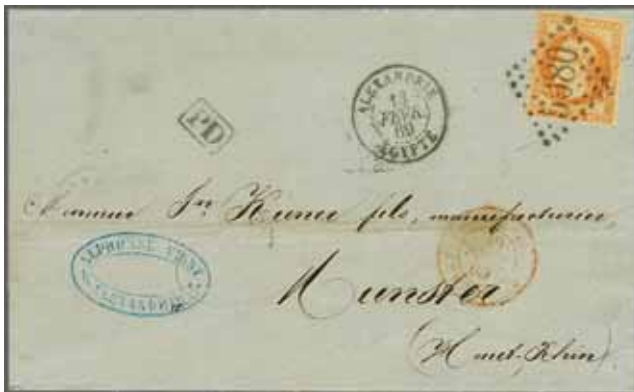 5080
ALEXANDRIE
13
FEVR
69
EGIPTE
PD
Monsieur Jn Kiener fils, manufacturier,
ALPHONSE
ALEXANDRIE
Munster
(Haut-Rhin)